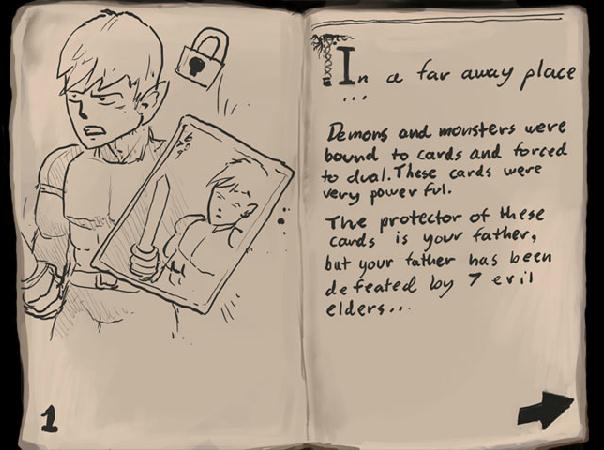 In a far away place
...
Demons and monsters were
bound to cards and forced
to dual. These cards were
very powerful.
The protector of these
cards is your father,
but your father has been
defeated by 7 evil
elders...
1